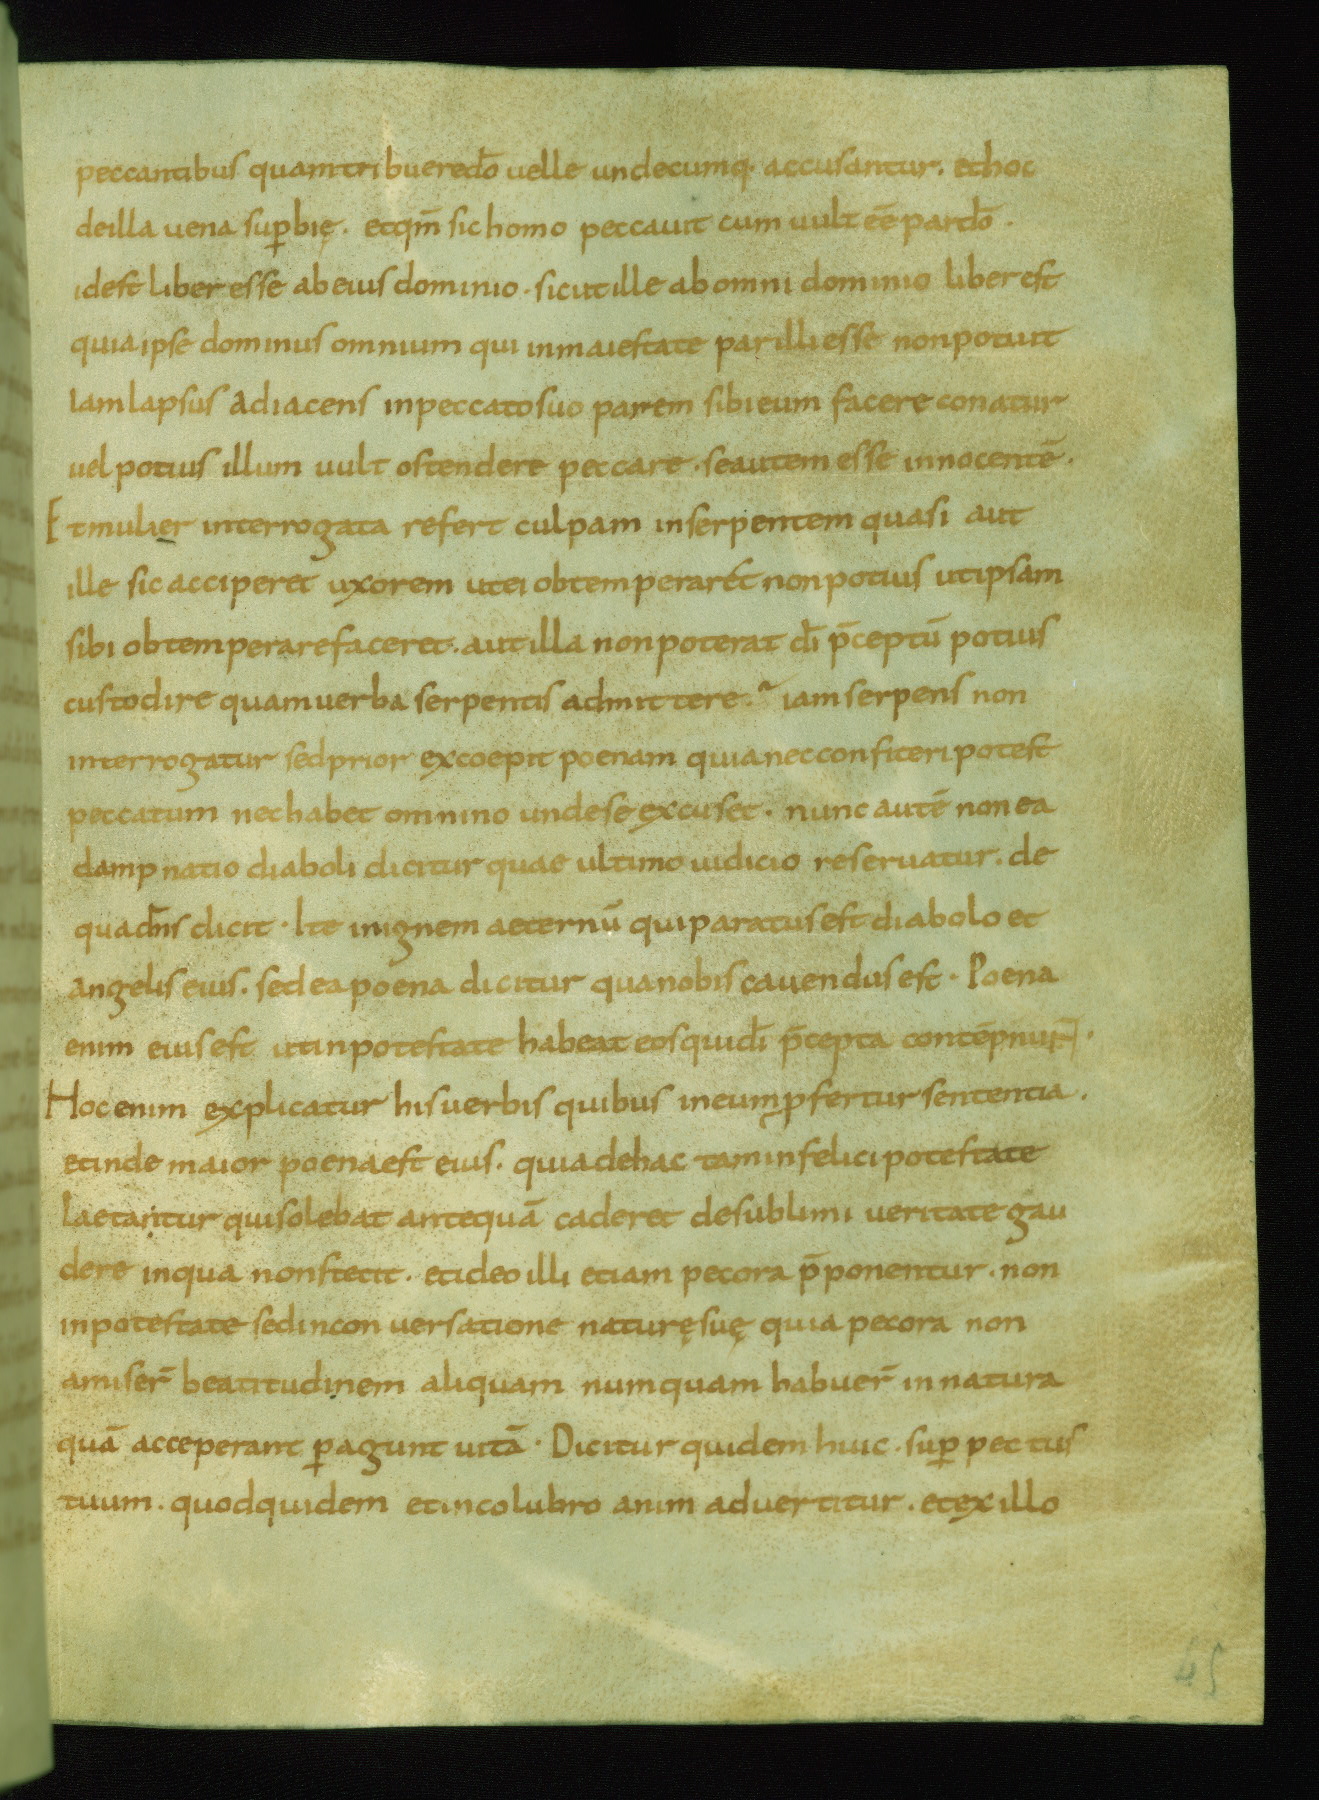 peccantibus quamtribueredō uelle undecumq· accusantur. ethoc
deilla uena sup̱bię. etqm̄ sichomo peccauit cum uult eē pardō.
idest liber esse abeius dominio. sicutille abomni dominio liber est
quiaipse dominus omnium qui inmaiestate parilliesse nonpotuit
Iamlapsus Adiacens inpeccatosuo parem sibieum facere conatur
uel potius illum uult ostendere peccare. seautem esse innocentē.
Etmulier interrogata refert culpam inserpentem quasi aut
ille sic acciperet uxorem utei obtemperarét nonpotius utipsam
sibi obtemperarefaceret. autilla nonpoterat dī p̄ceptū potius
custodire quamuerba serpentis admittere. iamserpens non
interrogatur sedprior excoepit poenam quianecconfiteripotest
peccatum nechabet omnino undese excuset. nunc autē non ea
dampnatio diaboli dicitur quae ultimo iudicio reseruatur. de
quadn̄s dicit. Ite inignem aeternū quiparatusest diabolo et
angelis eius. sed eapoena dicitur quanobis cauendus est. Poena
enim eiusest utinpotestate habeat eosquidī p̄cepta contēpnunt.
Hocenim explicatur hisuerbis quibus ineump̱fertur sententia.
etinde maior poenaest eius. quiadehac taminfelicipotestate
laetantur quisolebat antequā caderet desublimi ueritate gau
dere inqua nonstetit. etideo illi etiam pecora p̄ponentur. non
inpotestate sedinconuersatione naturęsuę quia pecora non
amiser̄ beatitudinem aliquam numquam habuer̄ innatura
quā acceperant p̱agunt uitā. Dicitur quidem huic. sup̱ pectus
tuum. quodquidem etincolubro anim aduertitur. etexillo
45